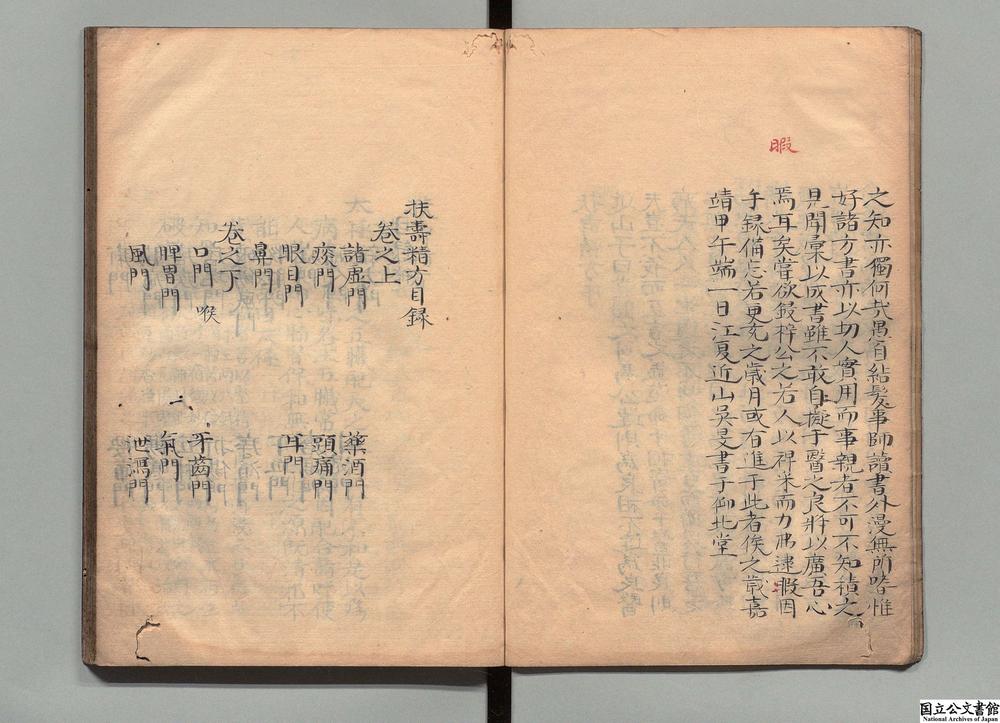 暇
之知亦獨何哉愚自結髮事師讀書外漫無所嗜惟
好諸方書亦以切人實用而事親者不可不知積之
見聞彙以成書雖不敢自擬于醫之良將以廣吾心
焉耳矣嘗欲鋟梓公之右人以裨米而力弗逮暇因
手録備忘若更充之歲月或有進于此者俟之嵗嘉
靖甲午端一日江夏近山吳旻書于仰北堂
扶壽精方目録
卷之上
諸虛門 藥酒門
痰門 頭痛門
眼目門 耳門
鼻門
卷之下
口門 喉 牙齒門
脾胃門 氣門
風門 泄瀉門
国立公文書館
National Archives of Japan